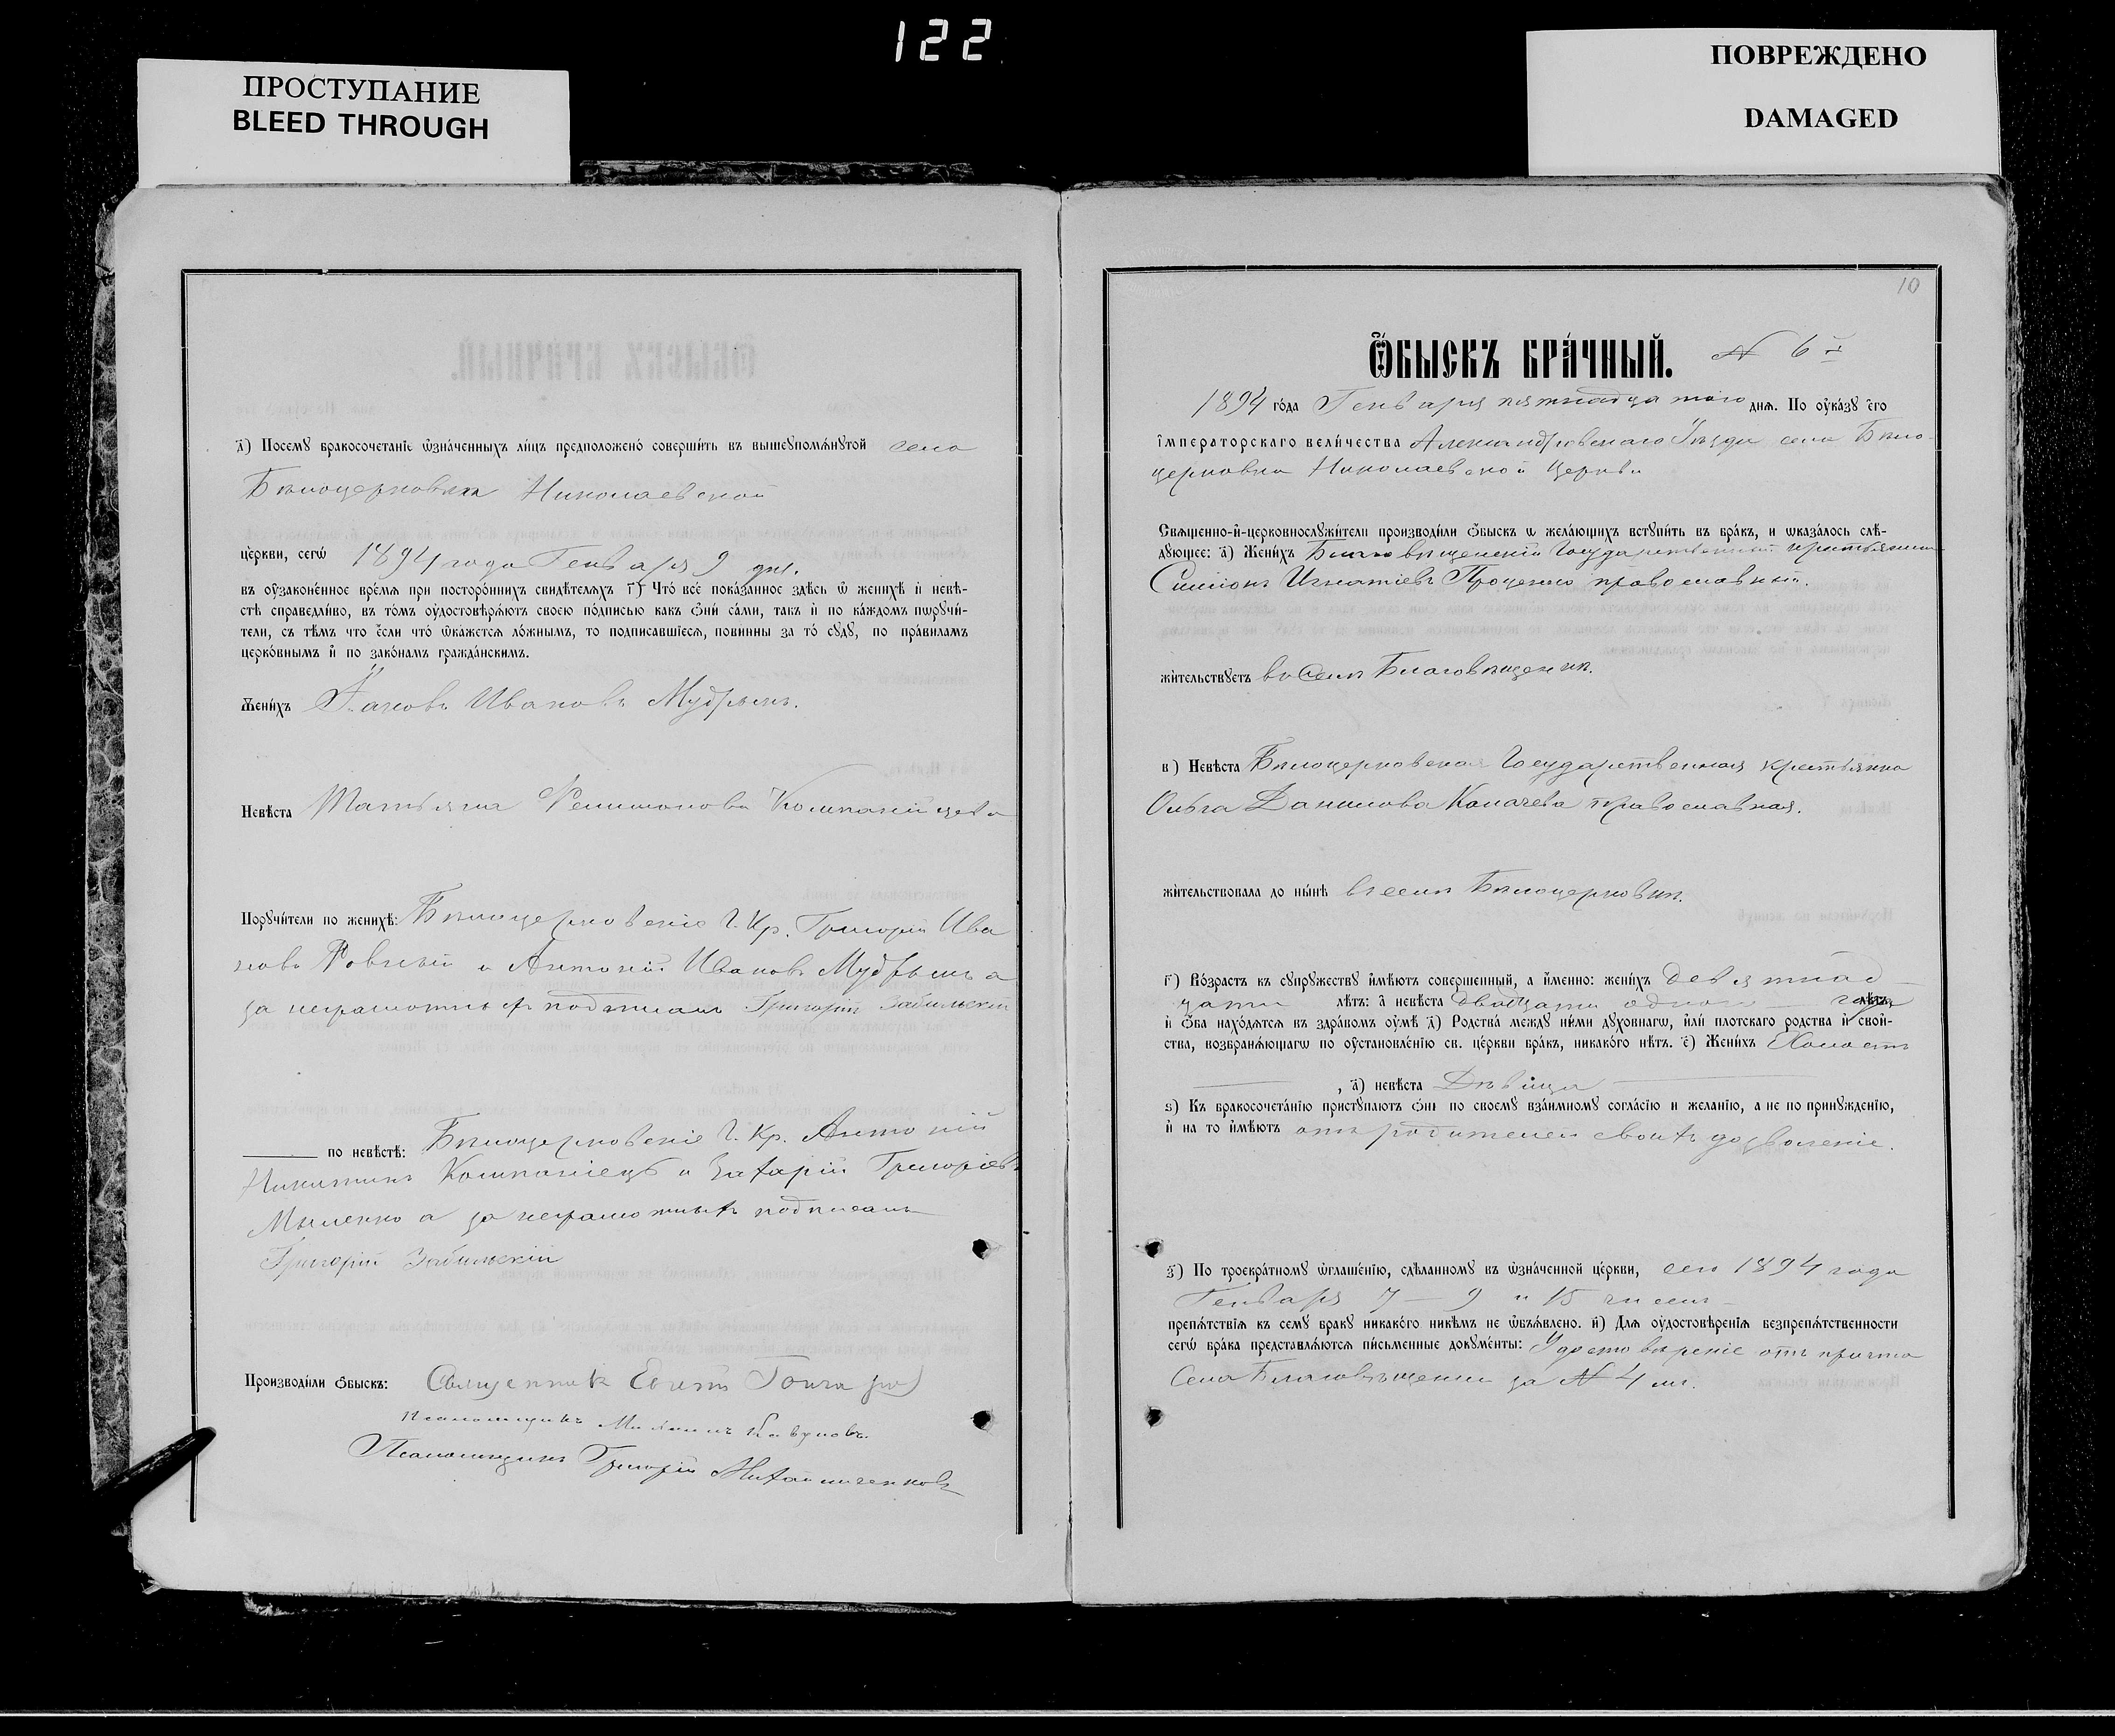 122
ПРОСТУПАНИЕ
BLEED THROUGH
ПОВРЕЖДЕНО
DAMAGED
д҃) Посему бракосочетаніе ѡзна́ченныхъ ли́цъ предположено́ соверши́ть въ вышеупомѧ́нутой села
Бѣлоцерковки Николаевской
це́ркви, сегѡ̀ 1894 года Генваря 9 дня.
въ оу҆зако́ненное вре́мѧ при посторо́ннихъ свидѣ́телѧхъ г҃) Что́ все́ пока́занное здѣ́сь ѡ҆ женихѣ̀ и҆ невѣ́-
стѣ справедли́во, въ то́мъ оу҆достовѣрѧ́ютъ своею по́дписью какъ ѻ҆ни́ са́ми, такъ и҆ по ка́ждомъ пѡручи́-
тели, съ тѣ́мъ что є҆́сли что́ ѡ҆ка́жетсѧ ло́жнымъ, то подписавші́есѧ, пови́нны за то́ суду̀, по пра́виламъ
церко́внымъ и҆ по зако́намъ гражда́нскимъ.
Жени́хъ Іаковъ Ивановъ Мудрыкъ.
Невѣ́ста Татьяна Филимонова Компанійцева
Поручи́тели по женихѣ̀: Бѣлоцерковскіе Г. Кр. Григорій Ива
новъ Ровный и Антоній Ивановъ Мудрыкъ а
за неграмотныхъ подписалъ Григорій Забильскій
по невѣ́стѣ: Бѣлоцерковскіе Г. Кр. Антоній
Никитинъ Компаніецъ и Захарій Григоріевъ
а за неграмотныхъ подписалъ
Григорій Забильскій
Производи́ли ѻ҆быскъ: Священник
Псаломщикъ Михаилъ
Псаломщикъ Григорій Михайличенковъ
10
Ѻ҆БЫСКЪ БРА́ЧНЫЙ. № 6й
1894 го́да Генваря пятнадцатого днѧ. По оу҆ка́зу є҆гѡ
і҆мператорскаго вели́чества Александровскаго Уѣзда села Бѣло-
церковки Николаевской Церкви
Свѧщенно-и҆-церковнослужи́тели производи́ли ѻ҆́быскъ ѡ жела́ющихъ вступи́ть въ бра́къ, и ѡказа́лось слѣ́-
дующее: а҃) Жени́хъ Благовѣщенскій Государственный крестьянинъ
Симіонъ Игнатіевъ Проценко православный.
жи́тельствуетъ въ Селѣ Благовѣщенкѣ.
в҃) Невѣ́ста Бѣлоцерковская Государственная крестьянка
Ольга Данилова Капачева православная.
жи́тельствовала до ны́нѣ въ селѣ Бѣлоцерковкѣ.
г҃) Во́зрастъ къ супружеству и҆мѣ́ютъ соверше́нный, а и҆́менно: жени́хъ девятнад
цати лѣтъ: а҆ невѣ́ста двадцати одного года лѣтъ
и҆ ѻ҆́ба нахо́дѧтсѧ въ здра́вомъ оу҆мѣ̀ д҃) Родства̀ между ни́ми духовнагѡ, и҆ли́ плотскаго родства и҆ свой-
ства, возбранѧ́ющагѡ по оу҆становле́нію св. це́ркви бра́къ, никако́го нѣ́тъ. є҃) Жени́хъ Холостъ
, а҃) невѣ́ста Дѣвица
ѕ҃) Къ бракосочета́нію приступа́ютъ ѻ҆нѝ по своему вза́имному согла́сію и жела́нію, а не по принужде́нію,
и҆ на то и҆мѣ́ютъ отъ родителей своихъ дозволеніе.
з҃) По троекра́тному ѡ҆глаше́нію, сдѣ́ланному въ ѡзна́ченной це́ркви, сего 1894 года
Генваря 7 — 9 и 15 чиселъ
препѧ́тствіѧ къ сему бра́ку никако́го никѣ́мъ не ѡ҆бъѧ́влено. и҃) Длѧ оу҆достовѣре́нія безпрепѧ́тственности
сегѡ̀ бра́ка представлѧ́ются пи́сьменные докуме́нты: Удостовѣреніе отъ причта
Села Благовѣщенки за № 4 мъ.